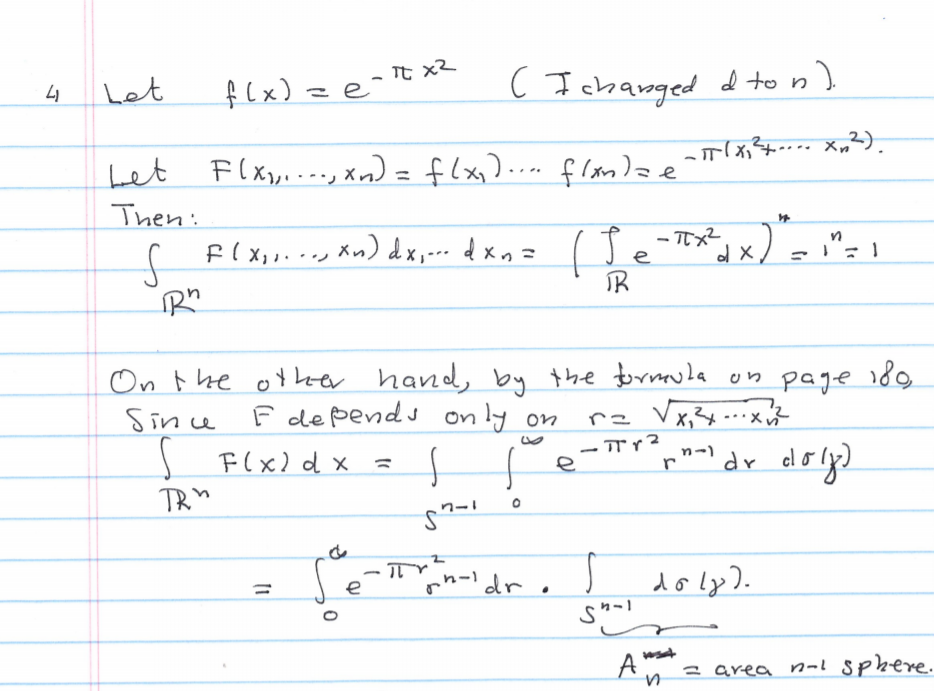 4 Let f(x) = e^{-πx²} ( I changed d to n ).
Let F(x₁, ...., xₙ) = f(x₁) .... f(xₙ) = e^{-π(x₁²+ .... xₙ²)}.
Then:
∫_{ℝⁿ} F(x₁, ...., xₙ) dx₁ ... dxₙ = ( ∫_ℝ e^{-πx²} dx )ⁿ = 1ⁿ = 1
On the other hand, by the formula on page 180,
Since F depends only on r = √(x₁²+ ... xₙ²)
∫_{ℝⁿ} F(x) dx = ∫_{Sⁿ⁻¹} ∫₀^∞ e^{-πr²} rⁿ⁻¹ dr dσ(y)
= ∫₀^∞ e^{-πr²} rⁿ⁻¹ dr . ∫_{Sⁿ⁻¹} dσ(y).
Aₙ = area n-1 sphere.